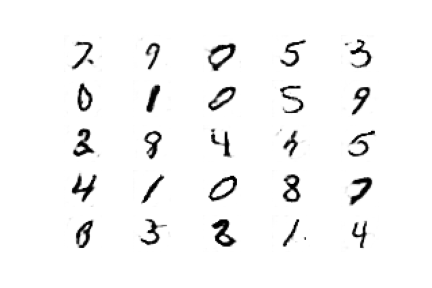 7 9 0 5 3
0 1 0 5 9
2 8 4 5
4 1 0 8 7
8 3 8 1 4